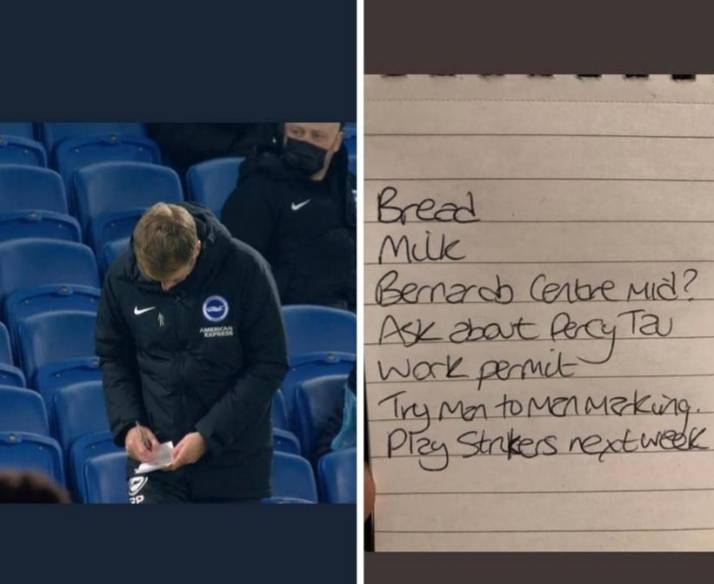 AMERICAN
EXPRESS
GP
Bread
Milk
Bernardo Centre Mid?
Ask about Percy Tau
Work permit
Try Man to Man Marking.
Play Strikers next week